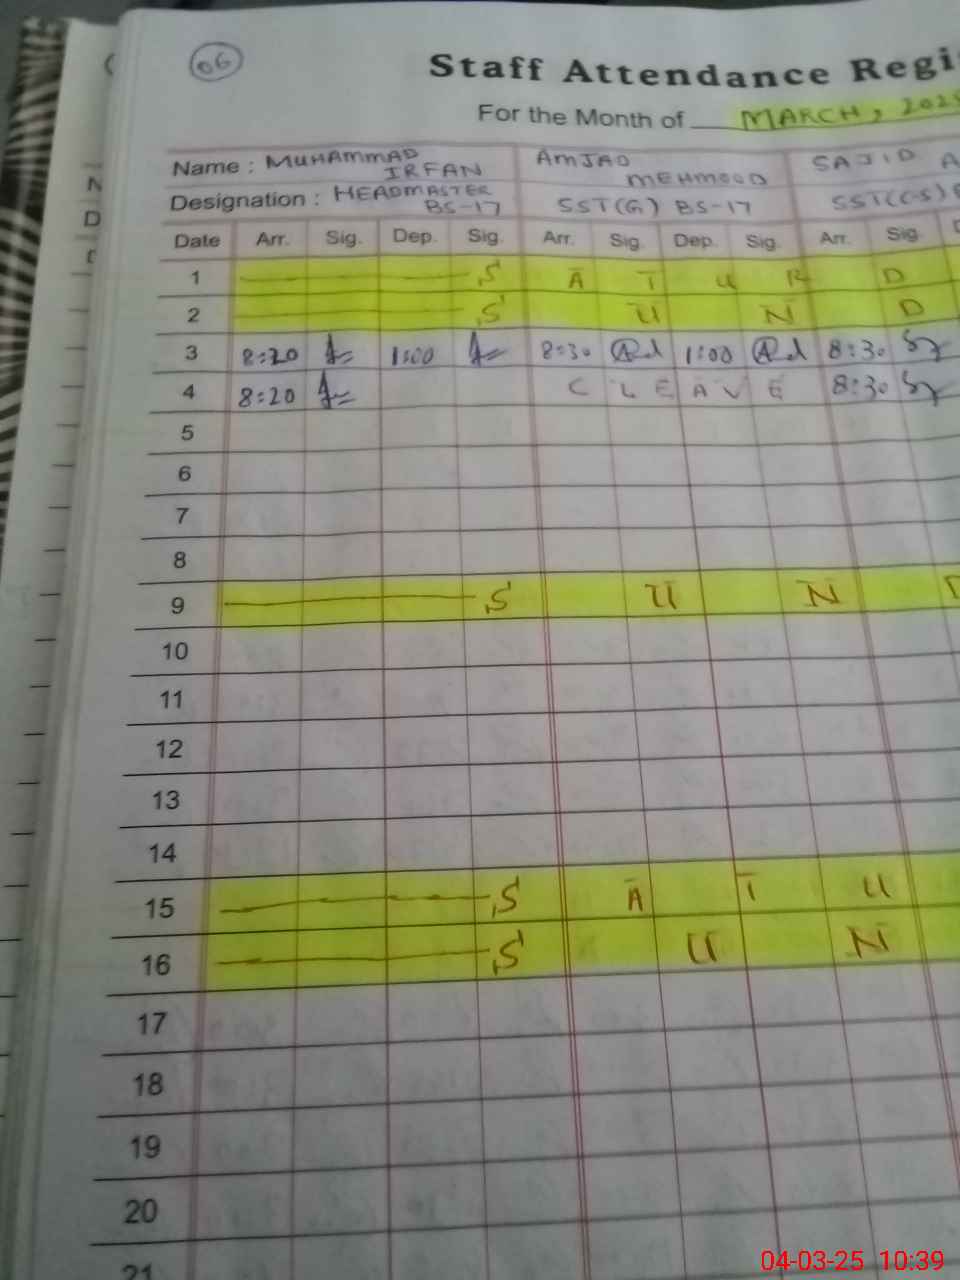 06
Staff Attendance Regi
For the Month of MARCH, 2025
Name : MUHAMMAD IRFAN AMJAD MEHMOOD SAJID A
Designation : HEADMASTER BS-17 SST(G) BS-17 SST(CS) B
Date Arr. Sig. Dep. Sig. Arr. Sig. Dep. Sig. Arr. Sig. D
1 S A T U R D
2 S U N D
3 8:20 1:00 8:30 1:00 8:30
4 8:20 C LEAVE 8:30
5
6
7
8
9 S U N D
10
11
12
13
14
15 S A T U
16 S U N
17
18
19
20
21
04-03-25 10:39